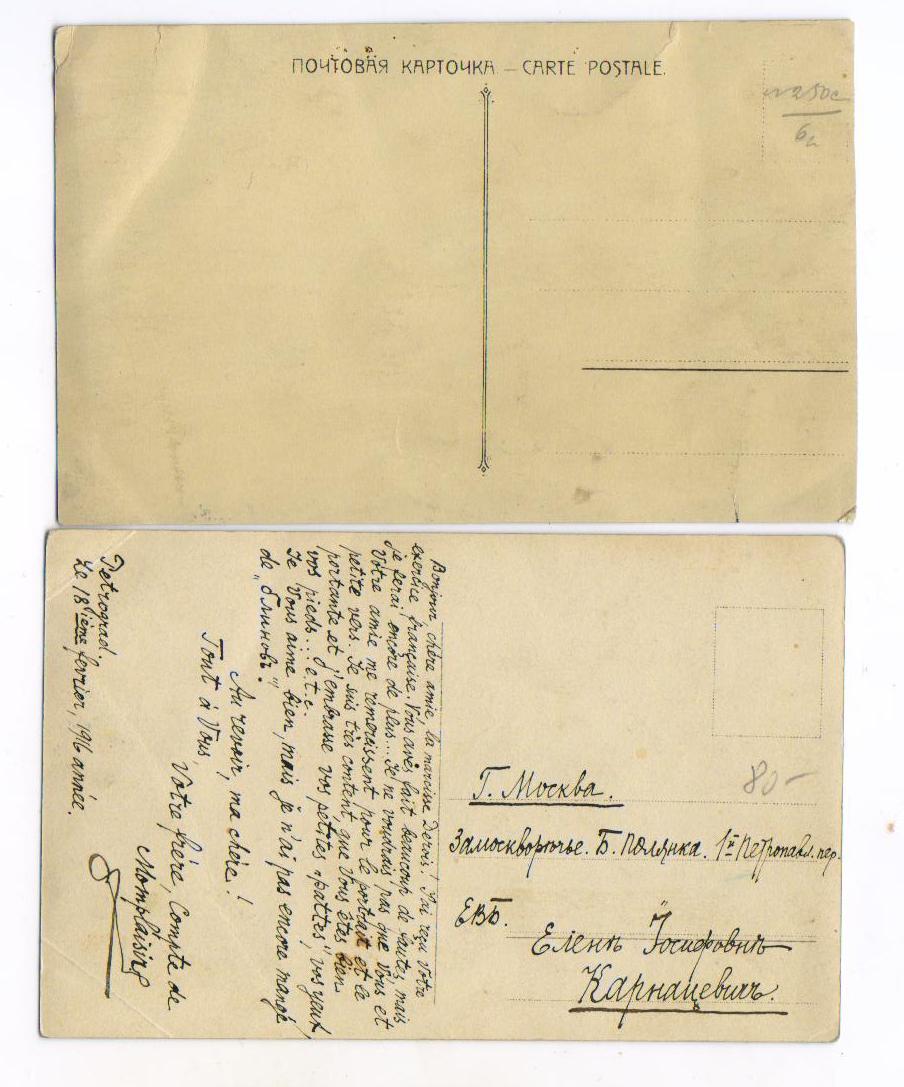 ПОЧТОВАЯ КАРТОЧКА — CARTE POSTALE.
250
6
Bonjour chère amie, la marcisse Derois! J'ai reçu Votre
exercice française. Vous avés fait beaucoup de fautes, mais
je ferai encore de plus... Je ne voudrais pas que Vous et
Votre amie me remercissent pour le portrait et le
petite vers. Je suis très content que Vous êtes bien
portante et j'embrasse vos petites „pattes", vos yeux,
vos pieds... e.t.c.
Je Vous aime bien, mais je n'ai pas encore mangé
de „блиновъ".
Au revoir, ma chère!
Tout à Vous,
Votre frère, Compte de
Momplaisir
Petrograd.
Le 18ième fevrier, 1916 année.
80-
Г. Москва.
Замоскворѣчье. Б. Полянка. 1й Петропавл. пер.
ЕВБ.
Еленѣ Iосифовнѣ
Карнацевичъ.